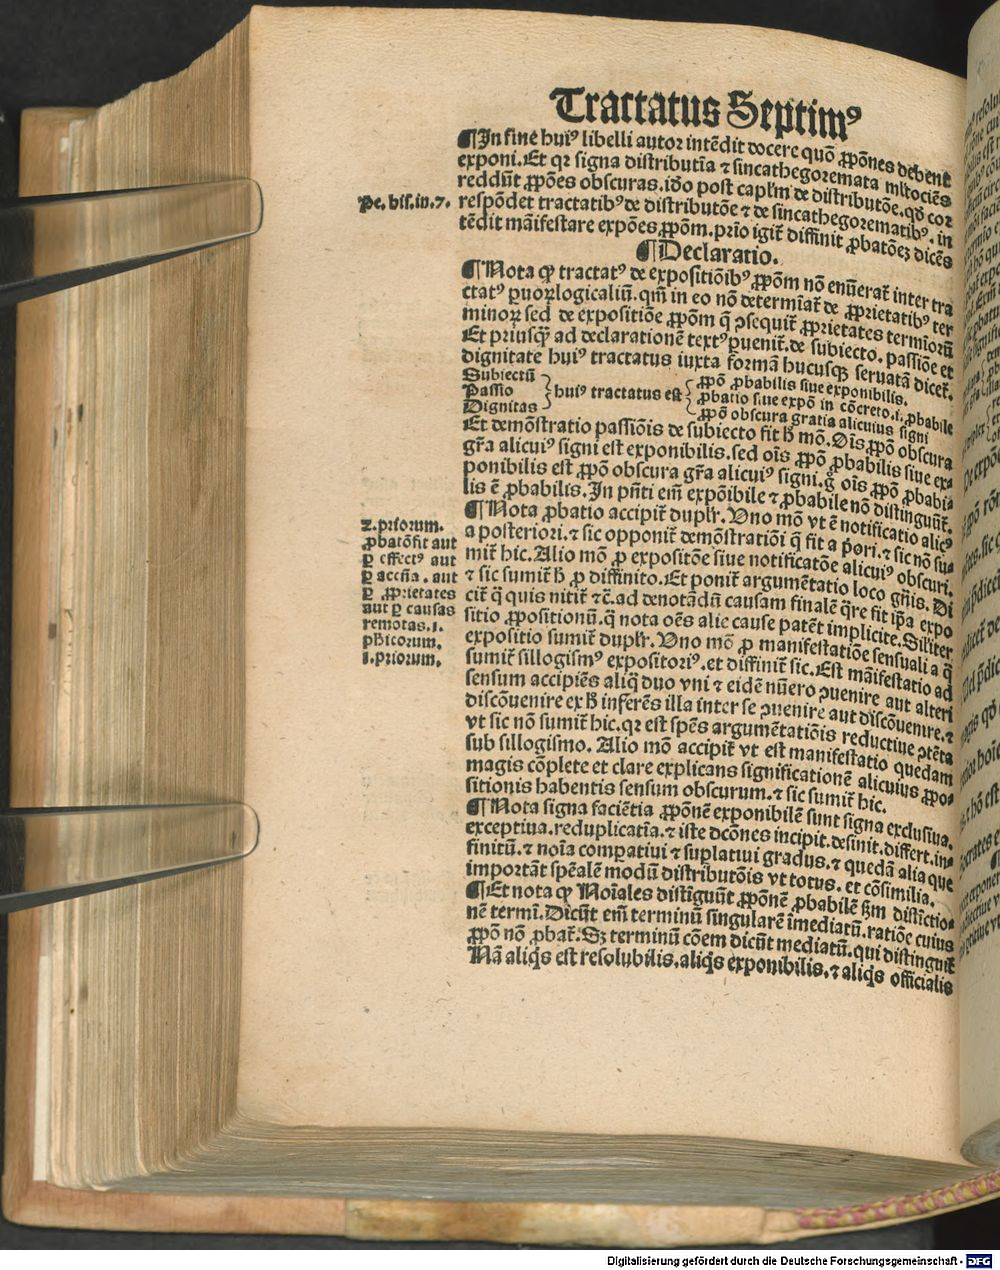 Tractatus Septimꝰ
¶In fine huiꝰ libelli autor intēdit docere quō ꝓpōnes debent
exponi. Et qꝛ signa distributīa ⁊ sincathegoremata mltociēs
reddūt ꝓpōes obscuras. iďo post capłm de distributōe. qď cor
Pe. his. in. 7.
respōdet tractatibꝰ de distributōe ⁊ de sincathegorematibꝰ. in
tēdit māifestare expōes ꝓpōm. prio igit̄ diffinit ꝓbatōeꝫ dicēs
¶Declaratio.
¶Nota ꝙ tractatꝰ de expositiōibꝰ ꝓpōm nō enūerat̄ inter tra
ctatꝰ ꝑuoꝝ logicaliū. qm̄ in eo nō determīat̄ de ꝓprietatibꝰ ter
minoꝝ sed de expositiōe ꝓpōm q̄ ꝯsequit̄ ꝓprietates termīorū
Et priusq̄ꝫ ad declarationē textꝰ ꝑuenit̄. de subiecto. passiōe et
dignitate huiꝰ tractatus iuxta formā hucusqꝫ seruatā dicet̄.
Subiectū
Passio
Dignitas
huiꝰ tractatus est
ꝓpō ꝓbabilis siue exponibilis.
ꝓbatio siue expō in cōcreto. i. ꝓbabile
ꝓpō obscura gratia alicuius signi
Et demōstratio passiōis de subiecto fit h̄ mō. Oīs ꝓpō obscura
gr̄a alicuiꝰ signi est exponibilis. sed oīs ꝓpō ꝓbabilis siue ex⸗
ponibilis est ꝓpō obscura gr̄a alicuiꝰ signi. g̊ oīs ꝓpō ꝓbabi⸗
lis ē ꝓbabilis. In pn̄ti em̄ expōibile ⁊ ꝓbabile nō distingunt̄.
¶Nota ꝓbatio accipit̄ duplr̄. Uno mō vt ē notificatio alicꝰ
2. priorum.
ꝓbatō fit aut
ꝑ effectꝰ aut
ꝑ accn̄a. aut
ꝑ ꝓprietates
aut ꝑ causas
remotas. 1.
phicorum.
1. priorum.
a posteriori. ⁊ sic opponit̄ demōstratiōi q̄ fit a pōri. ⁊ sic nō su⸗
mit̄ hic. Alio mō ꝓ expositōe siue notificatōe alicuiꝰ obscuri.
⁊ sic sumit̄ h̄ ꝓ diffinito. Et ponit̄ argumētatio loco gn̄is. Di
cit̄ q̄ quis nitit̄ ⁊c̄. ad denotādū causam finalē q̄re fit ip̄a expo
sitio ꝓpositionū. q̄ nota oēs alie cause patēt implicite. Sil̄iter
expositio sumit̄ duplr̄. Uno mō ꝓ manifestatiōe sensuali a q̄
sumit̄ sillogismꝰ expositoriꝰ. et diffinit̄ sic. Est māifestatio ad
sensum accipiēs aliq̄ duo vni ⁊ eidē nūero ꝯuenire aut alteri
discōuenire ex h̄ inferēs illa inter se ꝯuenire aut discōuenire. ⁊
vt sic nō sumit̄ hic. qꝛ est spēs argumētatiōis reductiue ꝯtēta
sub sillogismo. Alio mō accipit̄ vt est manifestatio quedam
magis cōplete et clare explicans significationē alicuius ꝓpo⸗
sitionis habentis sensum obscurum. ⁊ sic sumit̄ hic.
¶Nota signa faciētia ꝓpōnē exponibilē sunt signa exclusīua.
exceptiua. reduplicatīa. ⁊ iste dcōnes incipit. desinit. differt. in⸗
finitū. ⁊ noīa comꝑatiui ⁊ suꝑlatiui gradus. ⁊ quedā alia que
importāt spēalē modū distributōis vt totus. et cōsimilia.
¶Et nota ꝙ Noīales distīguūt ꝓpōnē ꝓbabilē ẜm distīctio⸗
nē termī. Dicūt em̄ terminū singularē īmediatū. ratiōe cuius
ꝓpō nō ꝓbat̄. Sꝫ terminū cōem dicūt mediatū. qui distinguit̄
Nā aliq̄s est resolubilis. aliq̄s exponibilis. ⁊ aliq̄s officialis
Digitalisierung gefördert durch die Deutsche Forschungsgemeinschaft - DFG